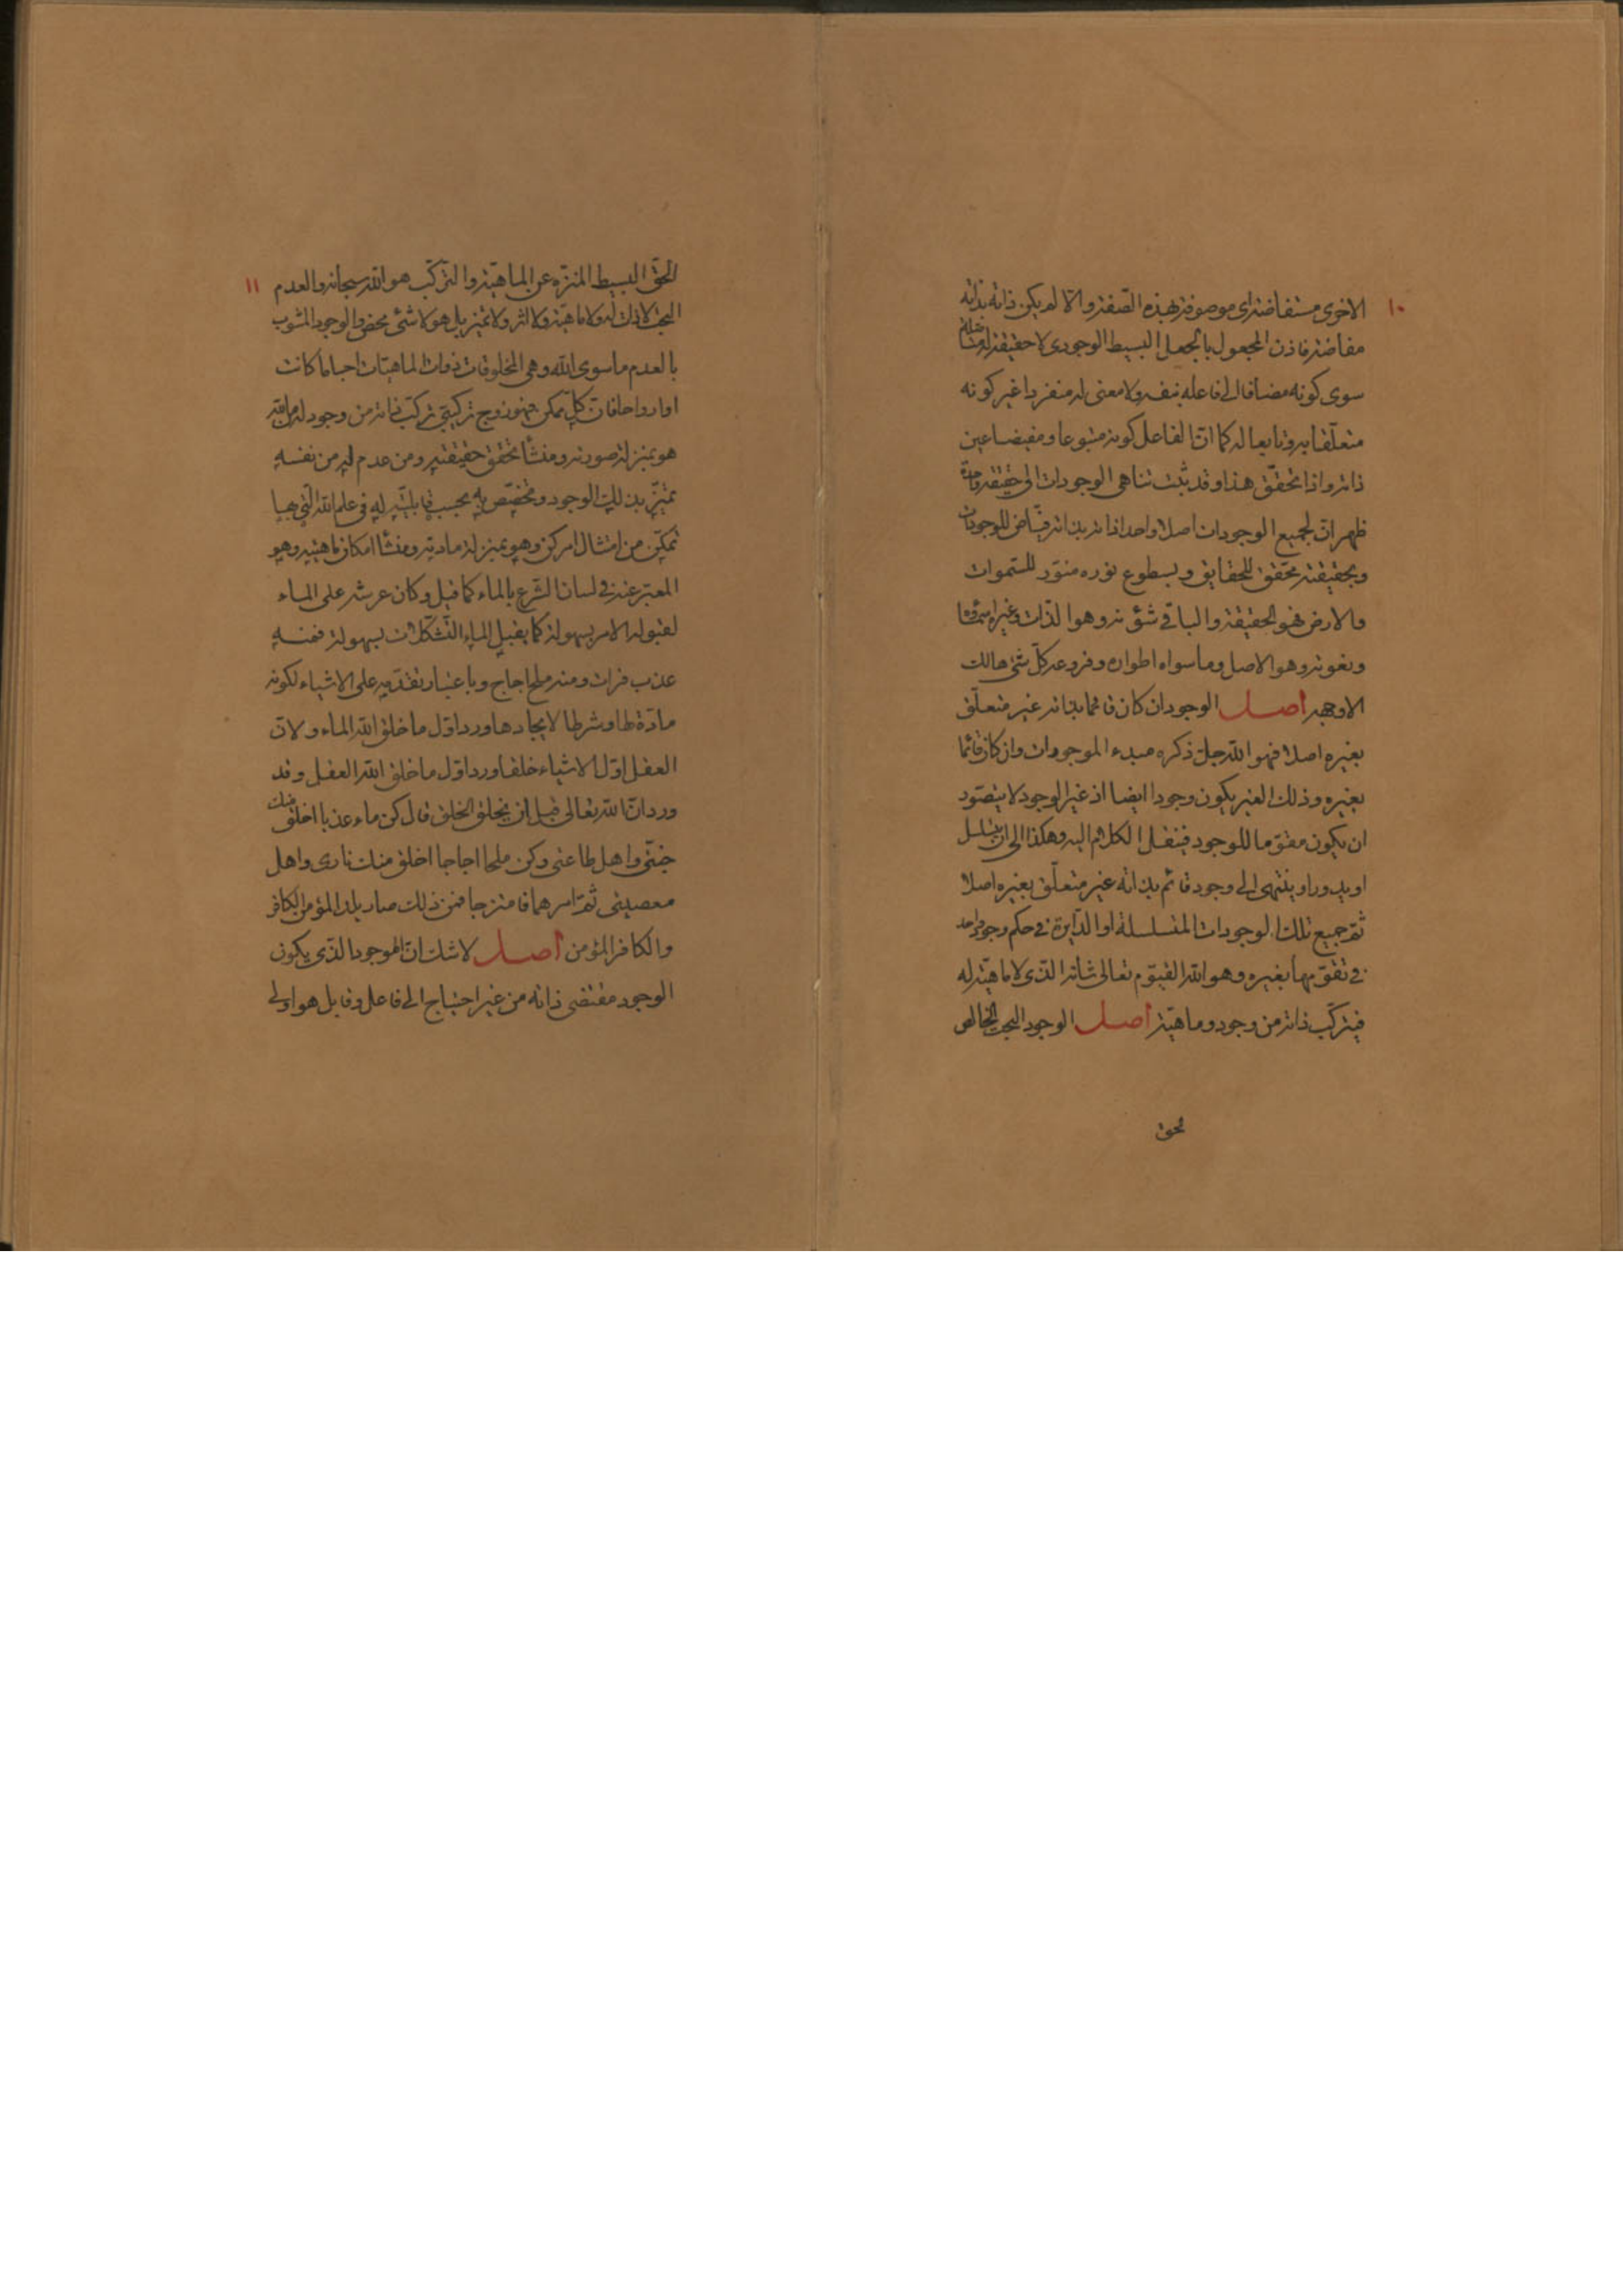 ١٠
الاخرى مستفاضة اى موصوفة بهذه الصّفة والّا لم يكن ذاته بذاته
مفاضة فاذن المجعول بالجعل البسيط الوجودى لا حقيقة له متأصّلة
سوى كونه مضافا الى فاعله بنفسه ولا معنى له منفردا غير كونه
متعلّقا به وتابعا له كما انّ الفاعل كونه متبوعا ومفيضا عين
ذاته واذا تحقّق هذا وقد ثبت تناهى الوجودات الى حقيقة واحدة
ظهر انّ لجميع الوجودات اصلا واحدا ذاته بذاته فيّاض للوجودات
وبحقيقته محقّق للحقايق وبسطوع نوره منوّر للسّموات
والارض فهو الحقيقة والباقى شؤنه وهو الذّات وغيره اسمآؤه
ونعوته وهو الاصل وما سواه اطواره وفروعه كلّ شئ هالك
الا وجهه اصل الوجود ان كان قائما بذاته غير متعلّق
بغيره اصلا فهو الله جلّ ذكره مبدء الموجودات وان كان قائما
بغيره وذلك الغير يكون وجودا ايضا اذ غير الوجود لا يتصوّر
ان يكون مقوّما للوجود فينقل الكلام اليه وهكذا الى ان يتسلسل
او يدور او ينتهى الى وجود قائم بذاته غير متعلّق بغيره اصلا
ثمّ جميع تلك الوجودات المتسلسلة او الدّايرة فى حكم وجود واحد
فى تقوّمها بغيره وهو الله القيّوم تعالى شانه الذى لا ماهيّة له
فيتركّب ذاته من وجود وماهيّة اصل الوجود البحت الخالص
لحق
١١
الحقّ البسيط المنزّه عن الماهيّة والتّركّب هو الله سبحانه والعدم
البحت لا ذات له ولا ماهيّة ولا اثر ولا تميّز بل هو لا شئ محض والوجود المشوب
بالعدم ما سوى الله وهى المخلوقات ذوات الماهيّات اجساما كانت
او ارواحا فانّ كلّ ممكن فهو زوج تركيبىّ تركّب ذاته من وجود له من ربّه
هو بمنزلة صورته ومنشأ تحقق حقيقته ومن عدم له من نفسه
تميّز بذلك الوجود وتخصّص به بحسب قابليّته له فى علم الله الّتى بها
تمكّن من امتثال امر كن وهو بمنزلة مادته ومنشأ امكان ماهيته وهو
المعبّر عنه فى لسان الشّرع بالماء كما قيل وكان عرشه على الماء
لقبوله الامر بسهولة كما يقبل الماء التّشكّلات بسهولة فمنه
عذب فرات ومنه ملح اجاج وباعتبار تقدّمه على الاشياء لكونه
مادّة لها وشرطا لايجادها ورد اوّل ما خلق الله الماء ولانّ
العقل اوّل الاشياء خلقا ورد اوّل ما خلق الله العقل وقد
ورد انّ الله تعالى قبل ان يخلق الخلق قال كن ماء عذبا اخلق منك
جنّتى واهل طاعتى وكن ملحا اجاجا اخلق منك نارى واهل
معصيتى ثمّ امرهما فامتزجا فمن ذلك صار يلد المؤمن الكافر
والكافر المؤمن اصل لا شك انّ الموجود الذى يكون
الوجود مقتضى ذاته من غير احتياج الى فاعل وقابل هو اولى